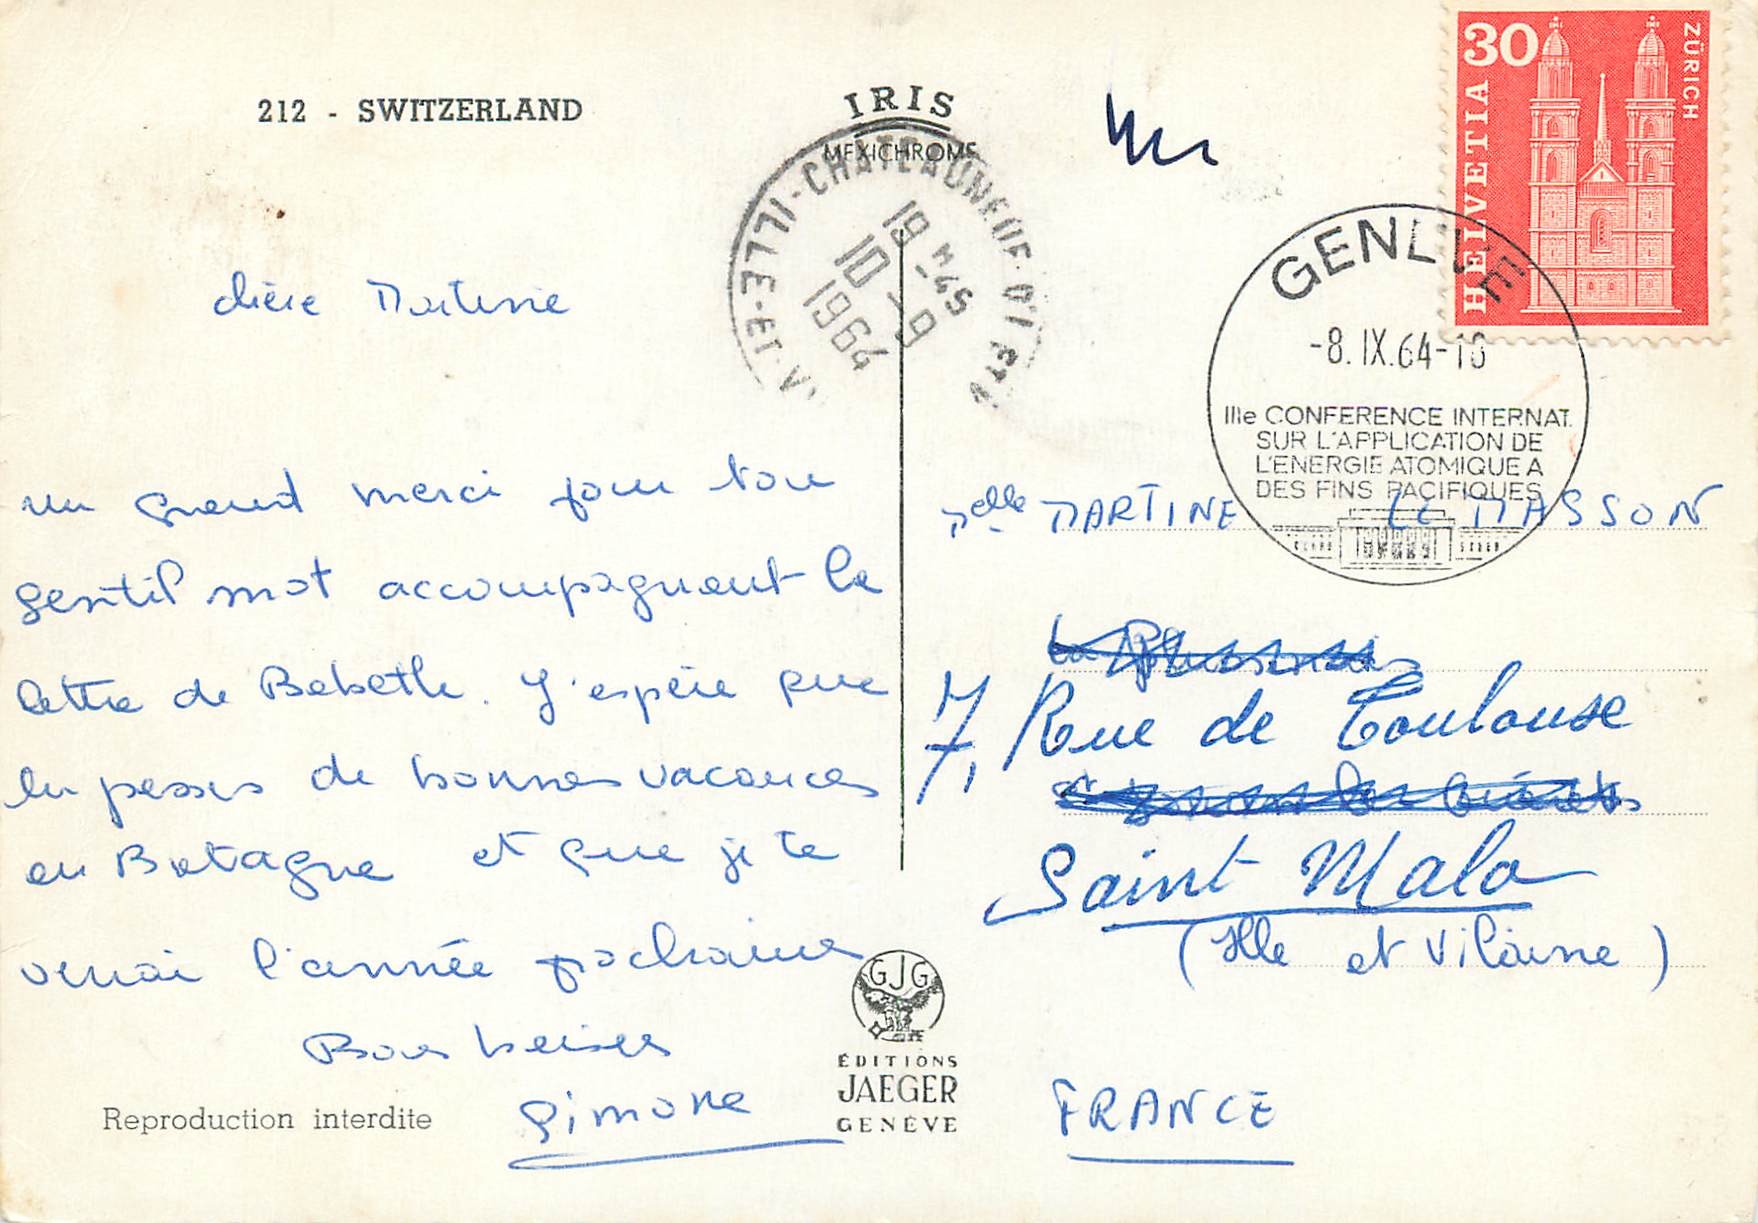 212 - SWITZERLAND
IRIS
MEXICHROME
30
ZÜRICH
HELVETIA
CHATEAUNEUF-D'I
ILLE-ET-V
19 H 45
10 - 9
1964
GENEVE
-8.IX.64-18
IIIe CONFERENCE INTERNAT.
SUR L'APPLICATION DE
L'ENERGIE ATOMIQUE A
DES FINS PACIFIQUES
chère Martine
un grand merci pour ton
gentil mot accompagnant la
lettre de Babeth. J'espère que
tu passes de bonnes vacances
en Bretagne et que je te
verrai l'année prochaine
Bons baisers
Simone
Melle MARTINE LE MASSON
7, Rue de Toulouse
Saint Malo
(Ille et Vilaine)
FRANCE
GJG
ÉDITIONS
JAEGER
GENÈVE
Reproduction interdite